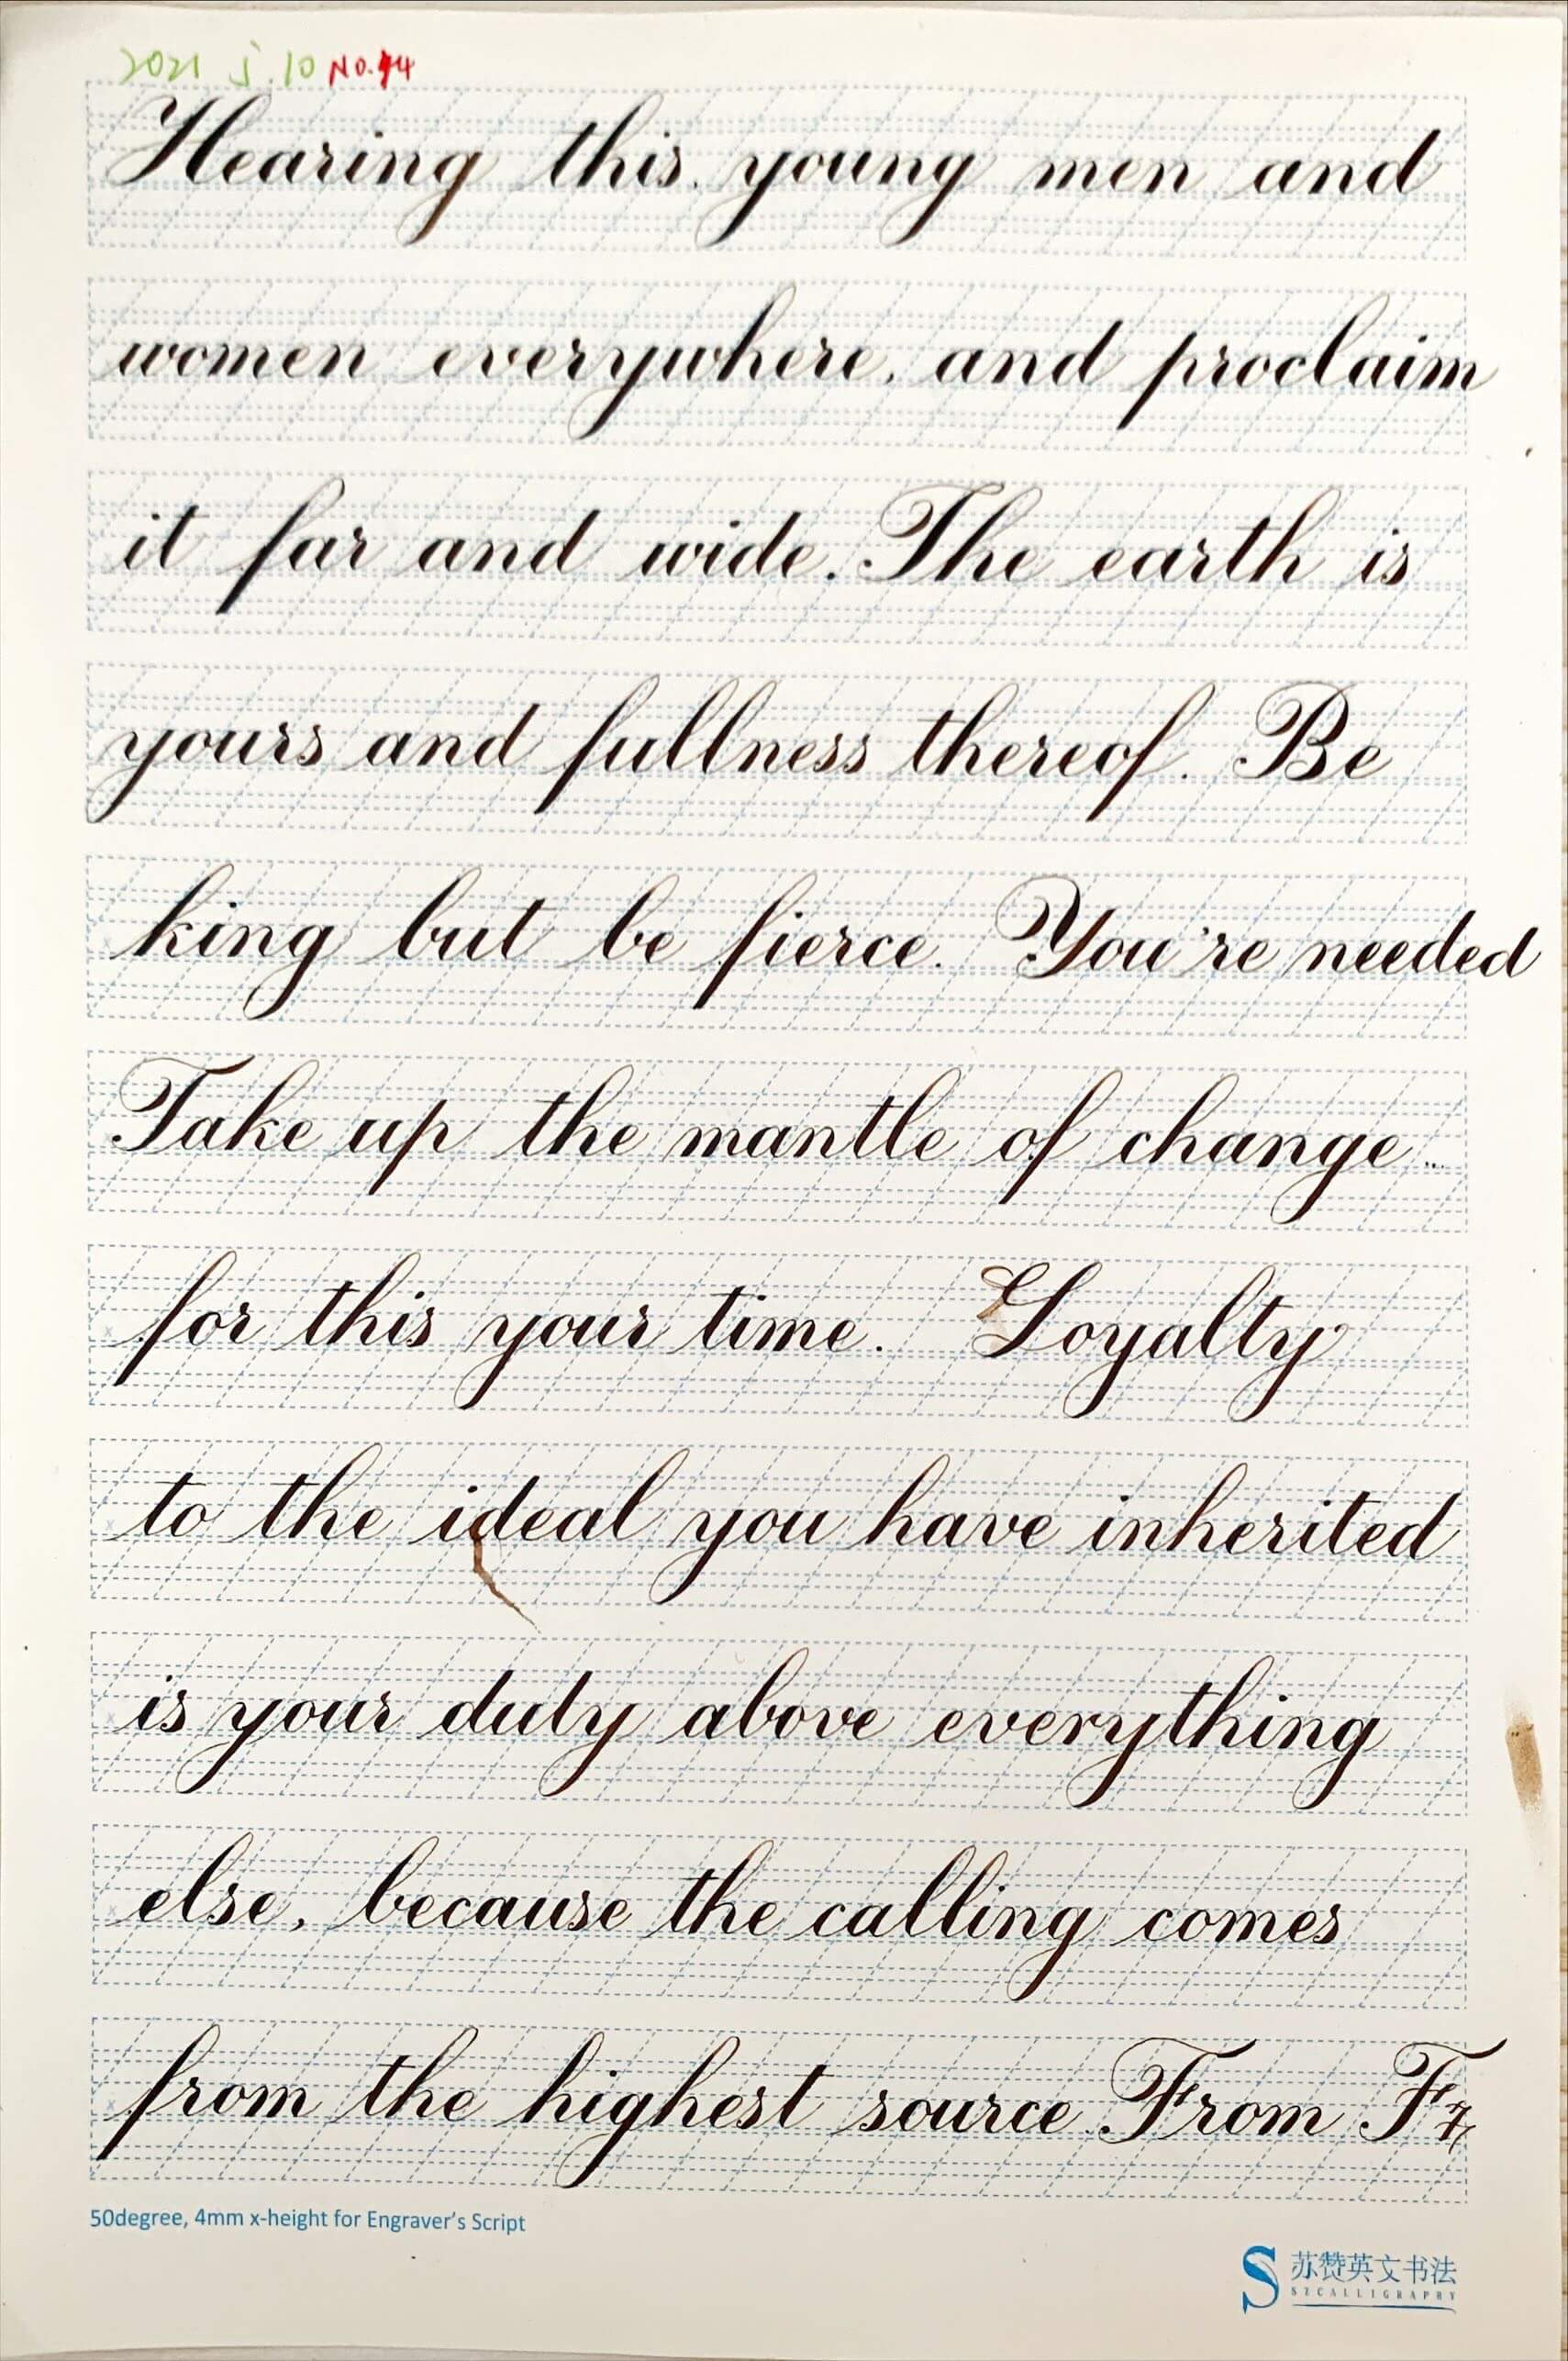 2021 5.10 No.94
Hearing this. young men and
women everywhere, and proclaim
it far and wide. The earth is
yours and fullness thereof. Be
king but be fierce. You're needed
Take up the mantle of change...
for this your time. Loyalty
to the ideal you have inherited
is your duty above everything
else, because the calling comes
from the highest source From F
50degree, 4mm x-height for Engraver's Script
苏赞英文书法
SZCALLIGRAPHY